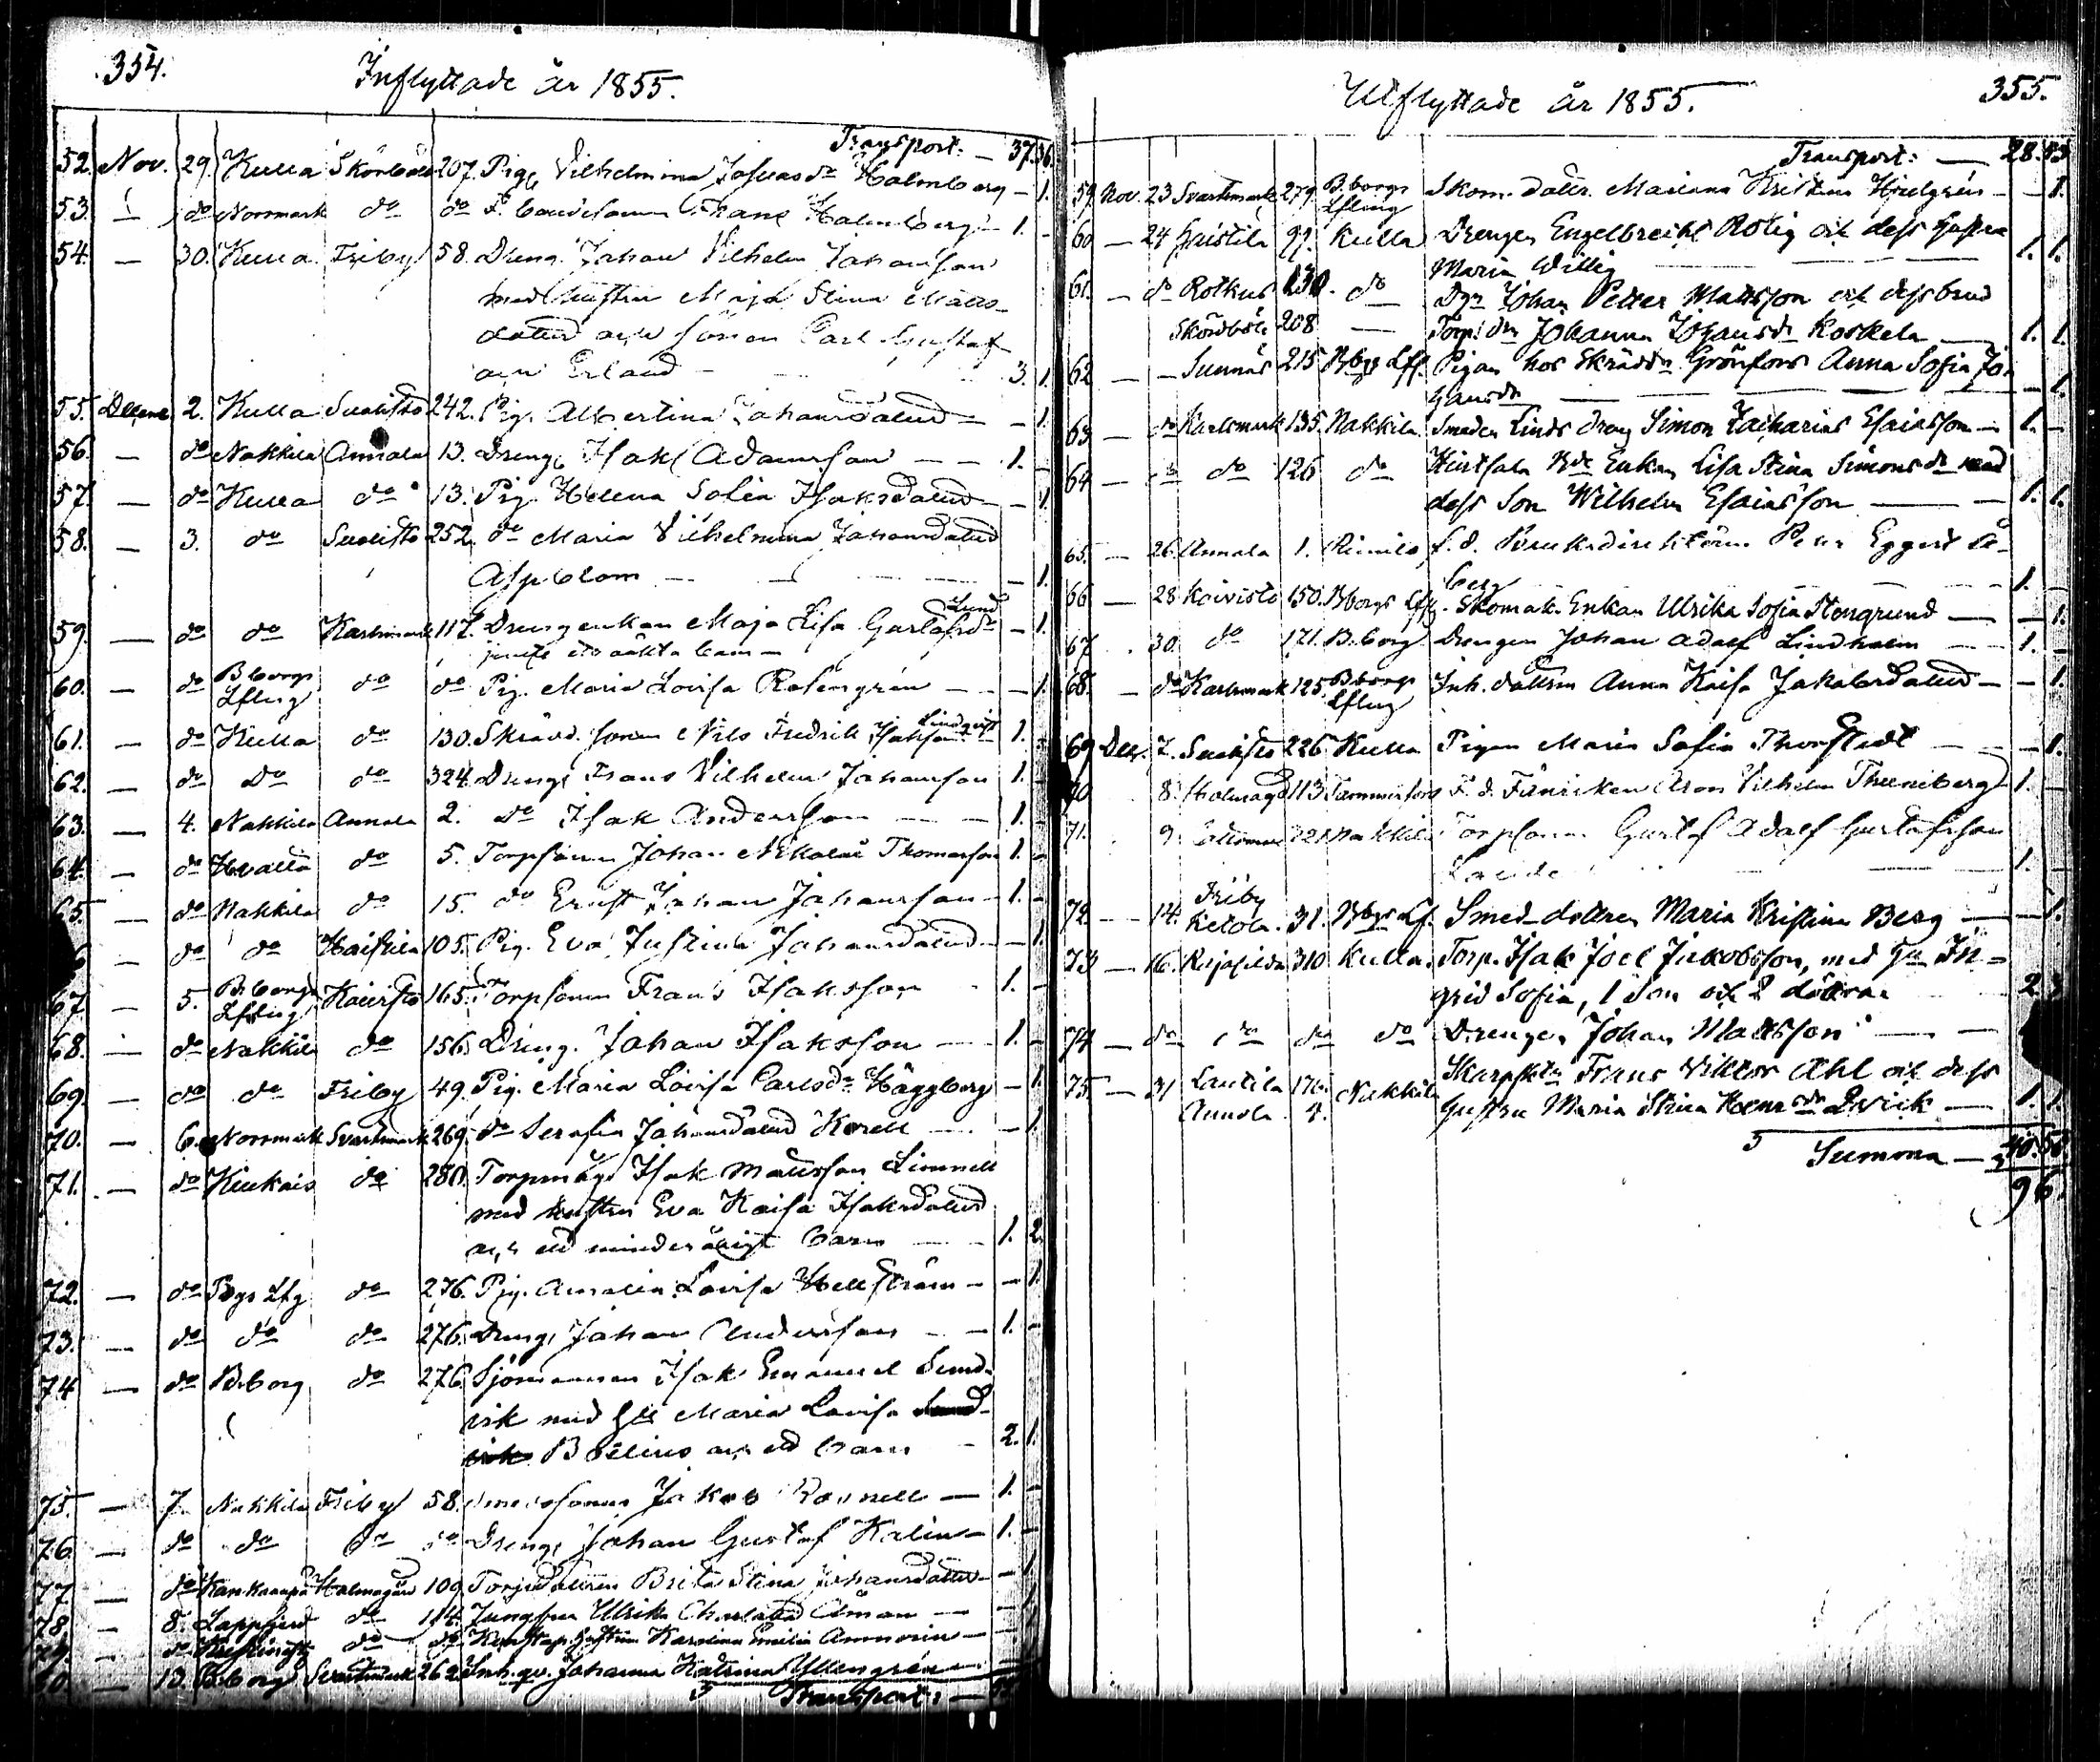 354.
Inflyttade år 1855.
Transport. — 37. 36.
52. Nov. 29. Kulla Skönbäle 207. Pig. Vilhelmina Josuasdr Holmberg — 1.
53. do Norrmark do do F. bondesonen Frans Holmberg — 1. -
54. — 30. Kulla Friby 58. Dreng. Johan Vilhelm Johansson
med hustru Maja Stina Matts-
dotter och sönen Carl Gustaf
och Erland - 3. 1.
55. Decemb. 2. Kulla Suolisto 242. Pig. Albertina Johansdotter — - 1.
56. — do Nakkila Annala 13. Dreng. Isak Adamsson — — 1. -
57. — do Kulla do 13. Pig. Helena Sofia Isaksdotter — 1.
58. — 3. do Suolisto 252. do Maria Vilhelmina Johansdotter
Aspblom — — — 1.
59. — do do Karlsmark 117. Drengenkan Maja Lisa Gustafsdr Lund — 1.
jemte etv oäkta barn —
60. — do B:borgs Lfling do do Pig. Maria Lovisa Rosengrén — — 1.
61. — do Kulla do 130. Skrädd. sonen Nils Fredrik Isaksson Lindqvist 1. -
62. — do Do do 324. Dreng. Frans Vilhelm Johansson 1. -
63. — 4. Nakkila Annala 2. do Isak Andersson — — 1. -
64. — do Hvalla do 5. Torpsonen Johan Nikolai Thomasson 1. -
65. — do Nakkila do 15. do Ernst Johan Johansson — 1. -
6 — do do Haistila 105. Pig. Eva Justina Johansdotter — 1.
67. — 5. B:borgs Lfling Koivisto 165. Torpsonen Frans Isaksson - 1. -
68. — do Nakkila do 156. Dreng. Johan Isaksson — 1. -
69. — do do Friby 49. Pig. Maria Lovisa Carlsdr Häggberg — 1.
70. — 6. Norrmark Svartsmark 269. do Serafia Johansdotter Korell — — 1.
71. — do Kiukais do 280. Torpmåg Isak Mattsson Limnell
med hustru Eva Kaisa Isaksdotter
och ett minderårigt barn — — 1. 2.
72. — do Bgs Lfg do 276. Pig. Amalia Lovisa Hellström — — 1.
73. — do do do 276. Dreng. Johan Andersson — — 1. -
74 — do B:borg do 276. Sjömannen Isak Emanuel Sund-
vik med hu Maria Lovisa Sund-
vik Boelius och ett barn - 2. 1.
75. — 7. Nakkila Friby 58. Smedssonen Jakob Rosnell — 1. -
76. — do do do do Dreng. Johan Gustaf Kalin — 1. -
77 — do Kankaanpä Halmagård 109. Torpdottren Brita Stina Johansdotter — 1
78. — 8. Lappfjerd do 114. Jungfru Ulrika Charlotta Åman — - 1
79 — do do do Karolina Emilia Ammorin —
80. — 10. B:borg Svartsmark 262. Inh. qv. Johanna Katrina Yllengrén —
Transport: —
Utflyttade år 1855.
355.
Transport: — 28. 43
59. Nov. 23 Svartsmark 279. B:borgs Lfling Skom. dottr. Mariana Kristina Hindgrén — — 1.
60 — 24 Haistila 97. Kulla Drengen Engelbrecht Rolig och dess hustru
Maria Willig — — — 1. 1.
61. — do Rotkus 130. do Dgn Johan Petter Mattsson och dess brud
Skönbäle 208 — Torp. dr Johanna Johansdr Koskela — 1. 1.
62 — — Sunnäs 215 B:bgs Lff. Pigan hos Skräddn Grönfors Anna Sofia Jo-
hansdr — — — 1.
63 — do Karlsmark 135. Nakkila Smeden Linds dreng Simon Zacharias Esaiasson — 1. -
64 — do do 126 do Enkan Lisa Stina Simonsdr med
dess Son Wilhelm Esaiasson — — 1. 1.
65 — 26. Annala 1. Rimito f. d. Bruksdirektören Peter Eggert
berg — — 1. -
66 — 28 Koivisto 150. B:borgs Lffg. Skomak. Enkan Ulrika Sofia Stengrund — — 1.
67 . 30. do 171. B:borg Drengen Johan Adolf Lindholm — 1. -
68. — do Karlsmark 125. B:borgs Lfling Inh. dottren Anna Kaisa Jakobsdotter — — 1.
69 Dec. 7. Suolisto 226 Kulla Pigan Maria Sofia Thorstedt — — 1.
70 8. Halmagd 113 Tammerfors F. d. Fänriken Aron Vilhelm Thuneberg 1. -
71. 9. Nakkila Torpsonen Gustaf Adolf Gustafsson
— — 1. -
72 — 14. Friby Ketola. 31. B:bgs Lf. Smed-dottren Maria Kristina Berg — — 1.
73 — 16. 310 Kulla. Torp. Isak Joel Jakobsson, med hu In-
grid Sofia, 1 Son och 2 döttrar — 2. 3
74 — do do do do Drengen Johan Mattsson — —
75. — 31 Lautila 176. Nakkila Skarpsktn Frans Viktor Ahl och dess
Annola 4. hustru Maria Stina Henrsdr Qvick — 1. 1.
Summa — 40. 56
96.